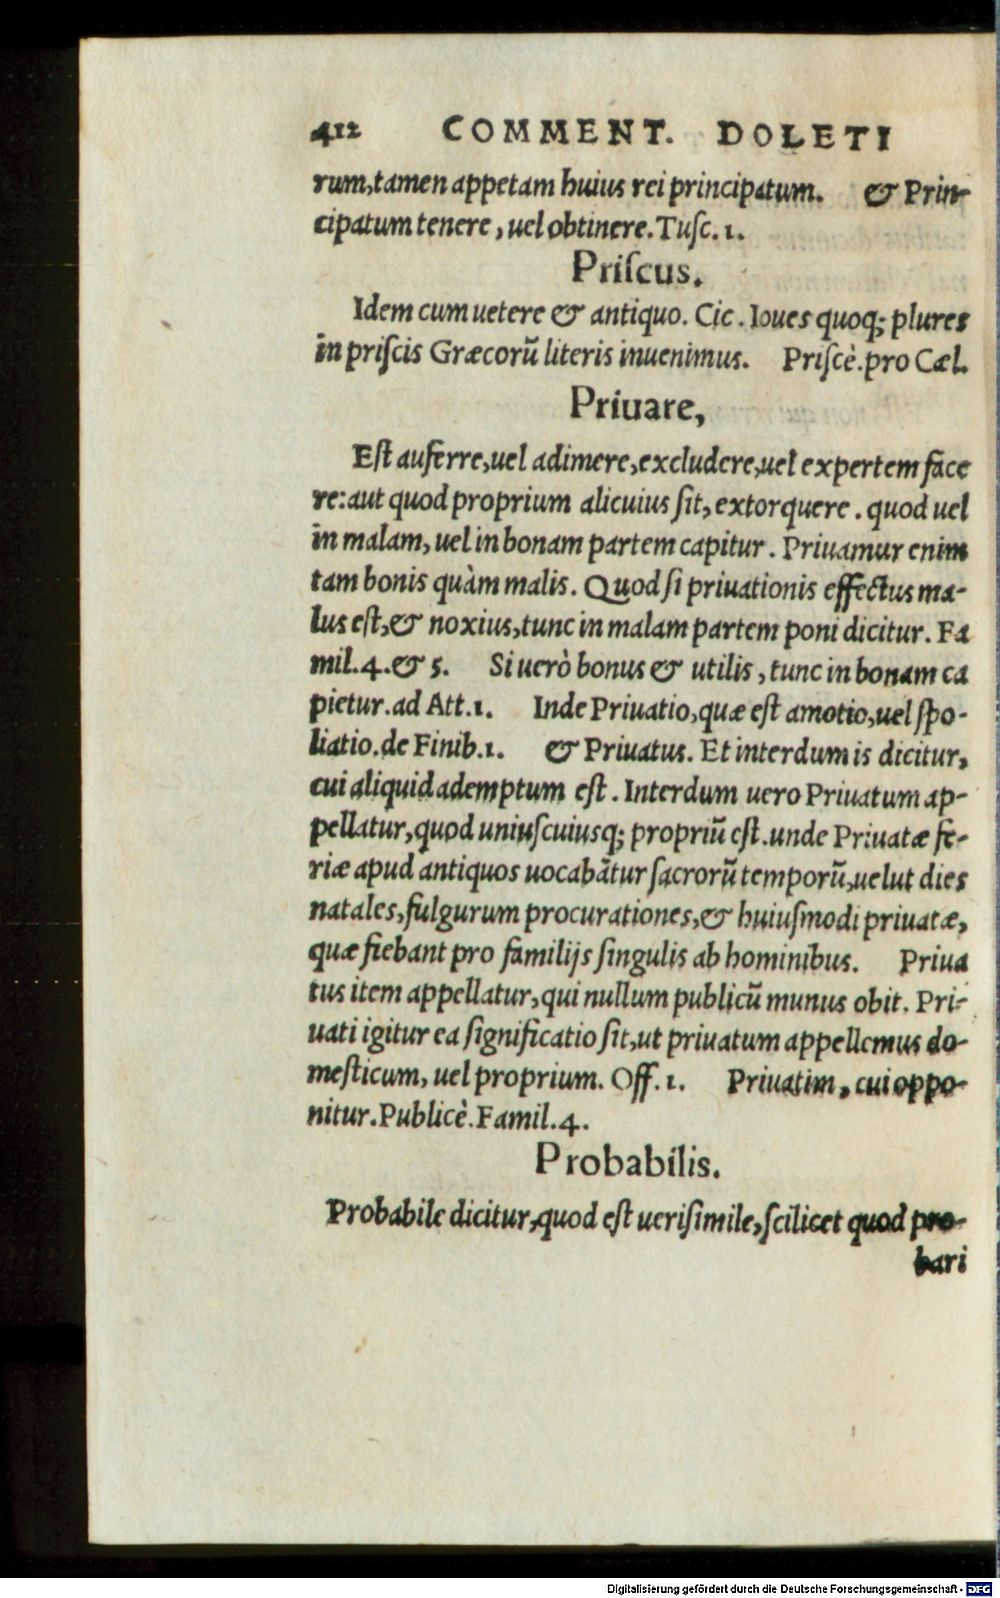 412 COMMENT. DOLETI
rum, tamen appetam huius rei principatum. & Prin-
cipatum tenere, uel obtinere. Tuſc. 1.
Priſcus.
Idem cum uetere & antiquo. Cic. Ioues quoq; plures
in priſcis Græcorũ literis inuenimus. Priſcè. pro Cæl.
Priuare,
Eſt auferre, uel adimere, excludere, uel expertem face
re: aut quod proprium alicuius ſit, extorquere. quod uel
in malam, uel in bonam partem capitur. Priuamur enim
tam bonis quàm malis. Quod ſi priuationis effectus ma-
lus eſt, & noxius, tunc in malam partem poni dicitur. Fa
mil. 4. & 5. Si uerò bonus & utilis, tunc in bonam ca
pietur. ad Att. 1. Inde Priuatio, quæ eſt amotio, uel ſpo-
liatio. de Finib. 1. & Priuatus. Et interdum is dicitur,
cui aliquid ademptum eſt. Interdum uero Priuatum ap-
pellatur, quod uniuſcuiusq; propriũ eſt. unde Priuatæ fe-
riæ apud antiquos uocabãtur ſacrorũ temporũ, uelut dies
natales, fulgurum procurationes, & huiuſmodi priuatæ,
quæ fiebant pro familijs ſingulis ab hominibus. Priua
tus item appellatur, qui nullum publicũ munus obit. Pri-
uati igitur ea ſignificatio ſit, ut priuatum appellemus do-
meſticum, uel proprium. Off. 1. Priuatim, cui oppo-
nitur. Publicè. Famil. 4.
Probabilis.
Probabile dicitur, quod eſt ueriſimile, ſcilicet quod pro-
bari
Digitalisierung gefördert durch die Deutsche Forschungsgemeinschaft - DFG